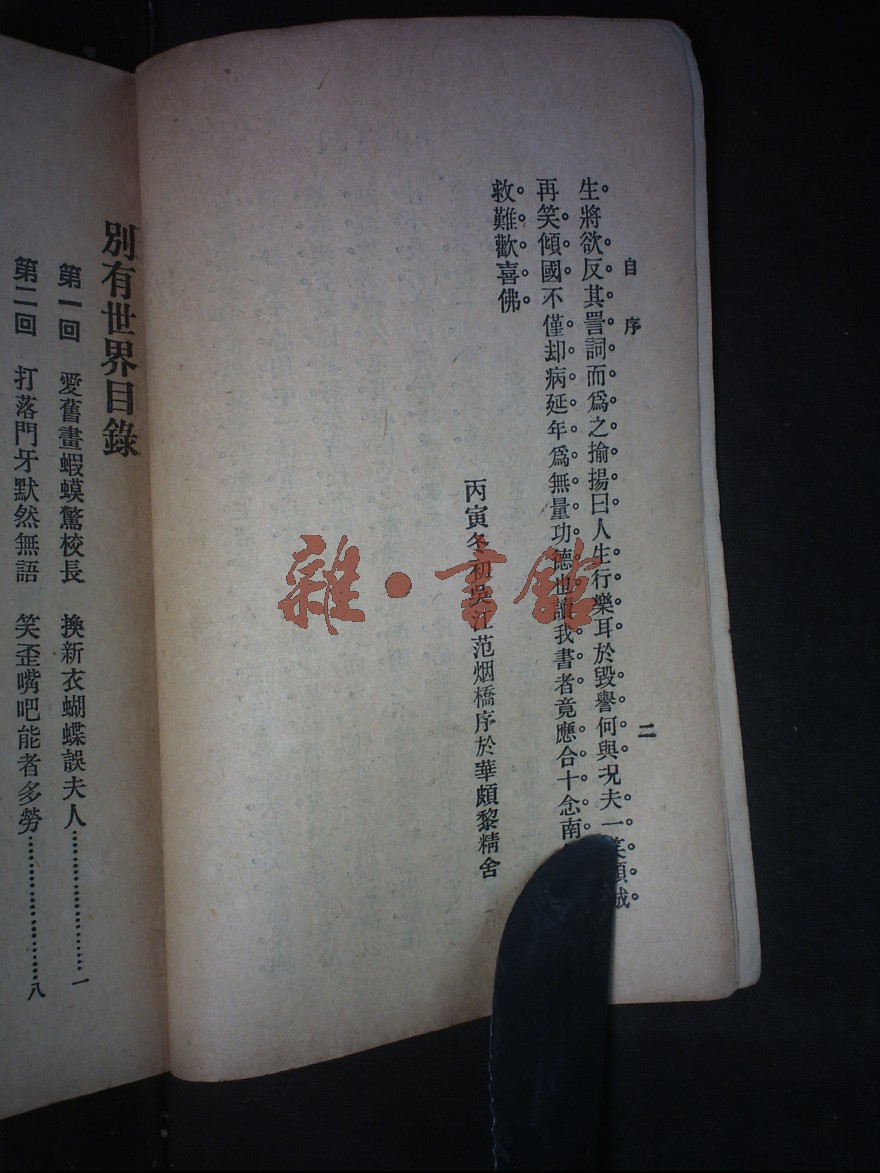 自序
二
生將欲反其詈詞而爲之揄揚曰人生行樂耳於毀譽何與況夫一笑傾城
再笑傾國不僅却病延年爲無量功德也讀我書者竟應合十念南
救難歡喜佛
丙寅冬初吳江范烟橋序於華頗黎精舍
別有世界目錄
第一回 愛舊畫蝦蟆驚校長 換新衣蝴蝶誤夫人……………………一
第二回 打落門牙默然無語 笑歪嘴吧能者多勞……………………八
雜·書館